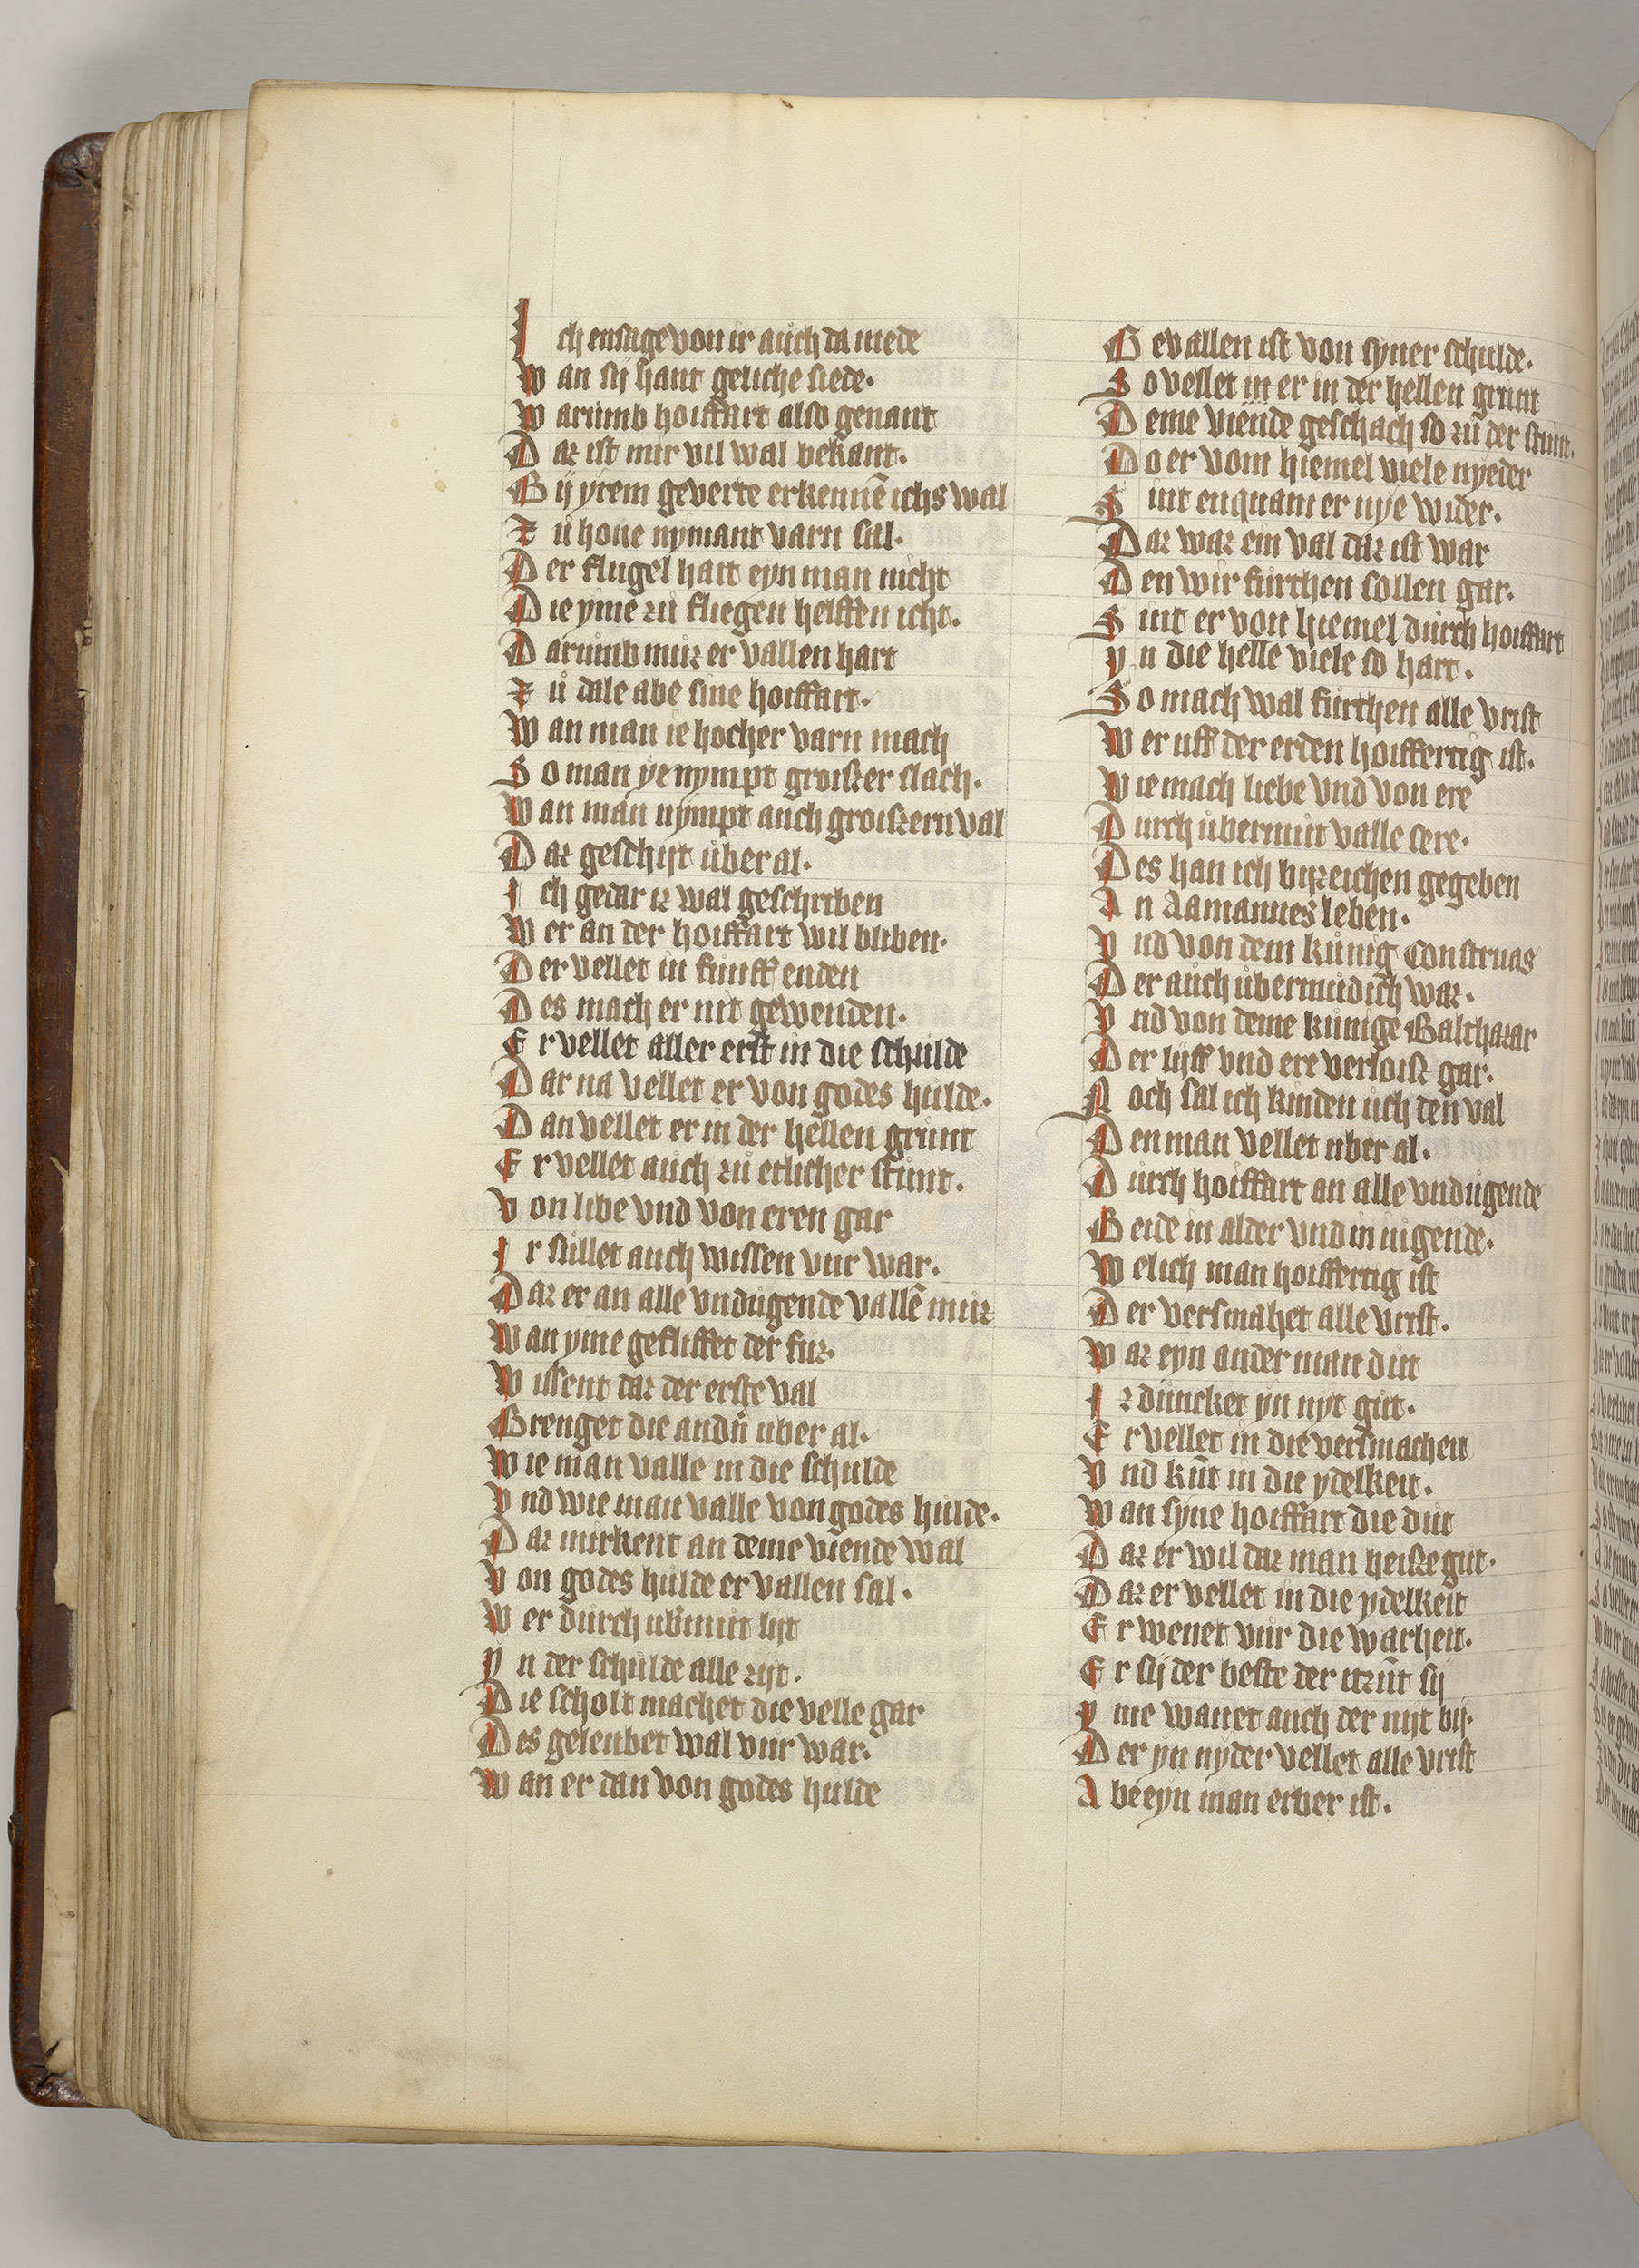 Ich ensage von ir auch da mede
Wan sij hant geliche siede.
Warumb hoiffart also genant
Daz ist mir vil wal bekant.
Bij yrem geverte erkennē ichs wal
Zů houe nymant varn sal.
Der flugel hait eyn man nicht
Die ymē zů fliegen helffen icht.
Darůmb můz er vallen hart
Zů dale abe sine hoiffart.
Wan man ie hocher varn mach
So man ye nympt groißer slach.
Wan man nympt auch groißern val
Daz geschijt ůber al.
Ich gedar iz wal geschriben
Wer an der hoiffart wil bliben.
Der vellet in fůnff enden
Des mach er nit gewenden.
Er vellet aller erst in die schulde
Dar na vellet er von godes hulde.
Dan vellet er in der hellen grůnt
Er vellet auch zů etlicher stůnt.
Von libe vnd von eren gar
Ir sůllet auch wissen vur war.
Daz er an alle vndugende vallē můz
Wan yme gesliffet der fuz.
Wissent daz der erste val
Brenget die andn̄ uber al.
Wie man valle in die schulde
Vnd wie man valle von godes hulde.
Daz mirkent an deme viende wal
Von godes hulde er vallen sal.
Wer durch ub̄mut lijt
Yn der schulde alle zijt.
Die scholt machet die velle gar
Des geleubet wal vůr war.
Wan er dan von godes hulde
Gevallen ist von syner schulde.
So vellet in er in der hellen grunt
Deme viende geschach so zů der stunt.
Do er vom hiemel viele nyeder
Sint enquam er nye wider.
Daz waz ein val daz ist war
Den wir furthen sollen gar.
Sint er von hiemel důrch hoiffart
Yn die helle viele so hart.
So mach wal furthen alle vrist
Wer uff der erden hoiffertig ist.
Wie mach liebe vnd von ere
Durch ůbermůt valle sere.
Des han ich bijzeichen gegeben
An Aamannes leben.
Vnd von dem kůnig Construas
Der auch ůbermůdich waz.
Vnd von deme kůnige Balthazar
Der lijff vnd ere verloiß gar.
Noch sal ich kůnden uch den val
Den man vellet uber al.
Důrch hoiffart an alle vndůgende
Beide in alder vnd in iugende.
Welich man hoiffertig ist
Der versmahet alle vrist.
Waz eyn ander man dut
Iz důncket yn nyt gůt.
Er vellet in die versmachen
Vnd kūt in die ydelkeit.
Wan syne hoiffart die důt
Daz er wil daz man heiße gut.
Daz er vellet in die ydelkeit
Er wenet vůr die warheit.
Er sij der beste der itzūt sij
Yme wanet auch der nijt bij.
Der yn nyder vellet alle vrist
Abe eyn man erber ist.